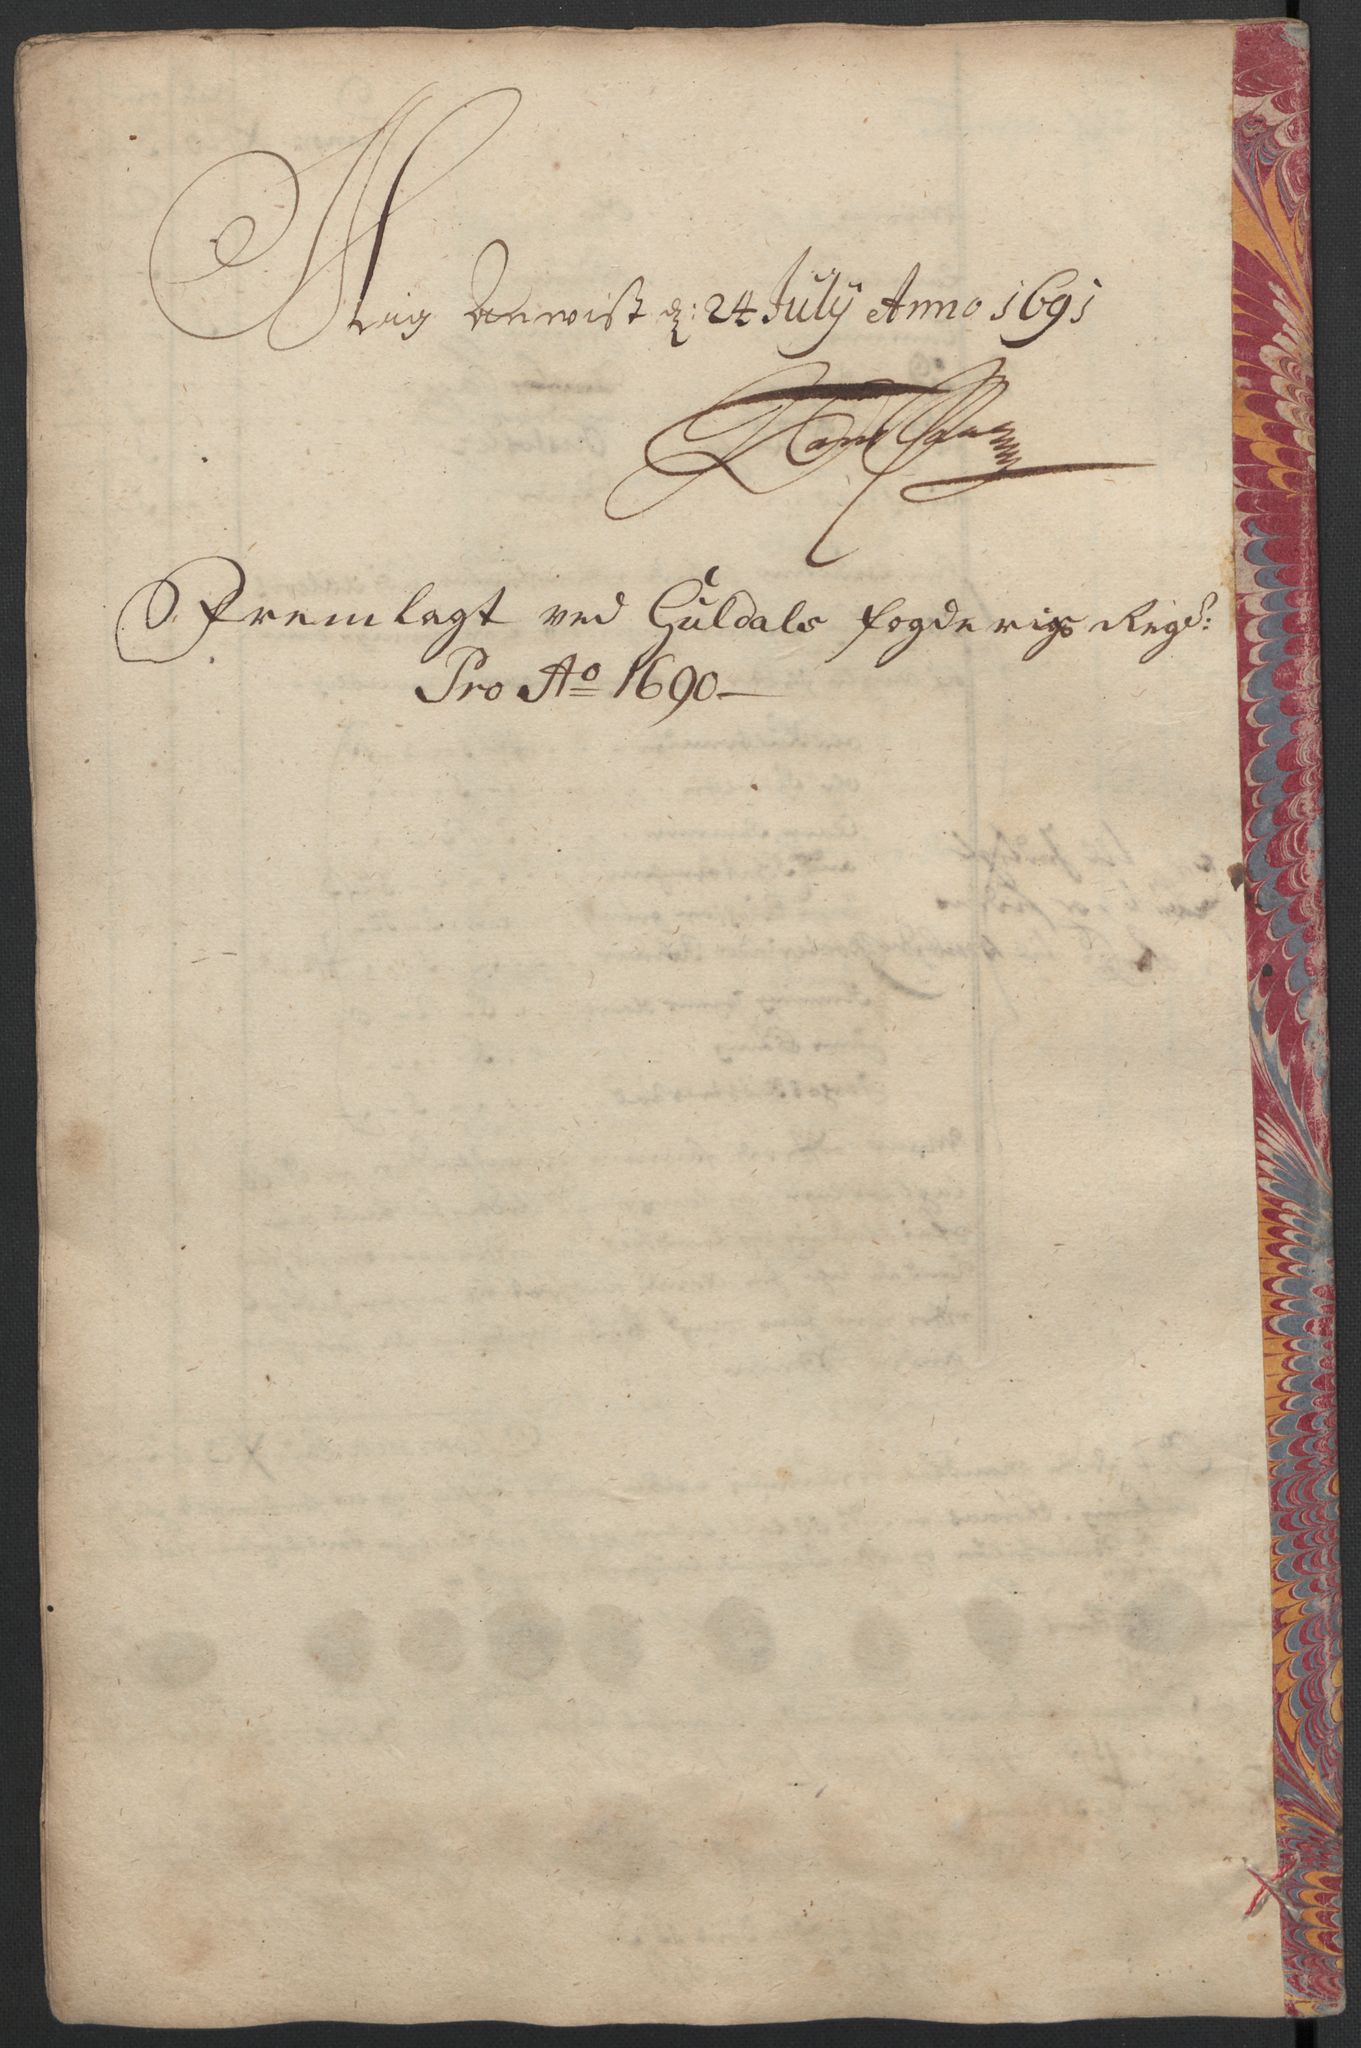 Meig Anvist d: 24 July Anno 1691
Fremlagt ved Guldals fogderigs Regsk:
Pro Ao 1690